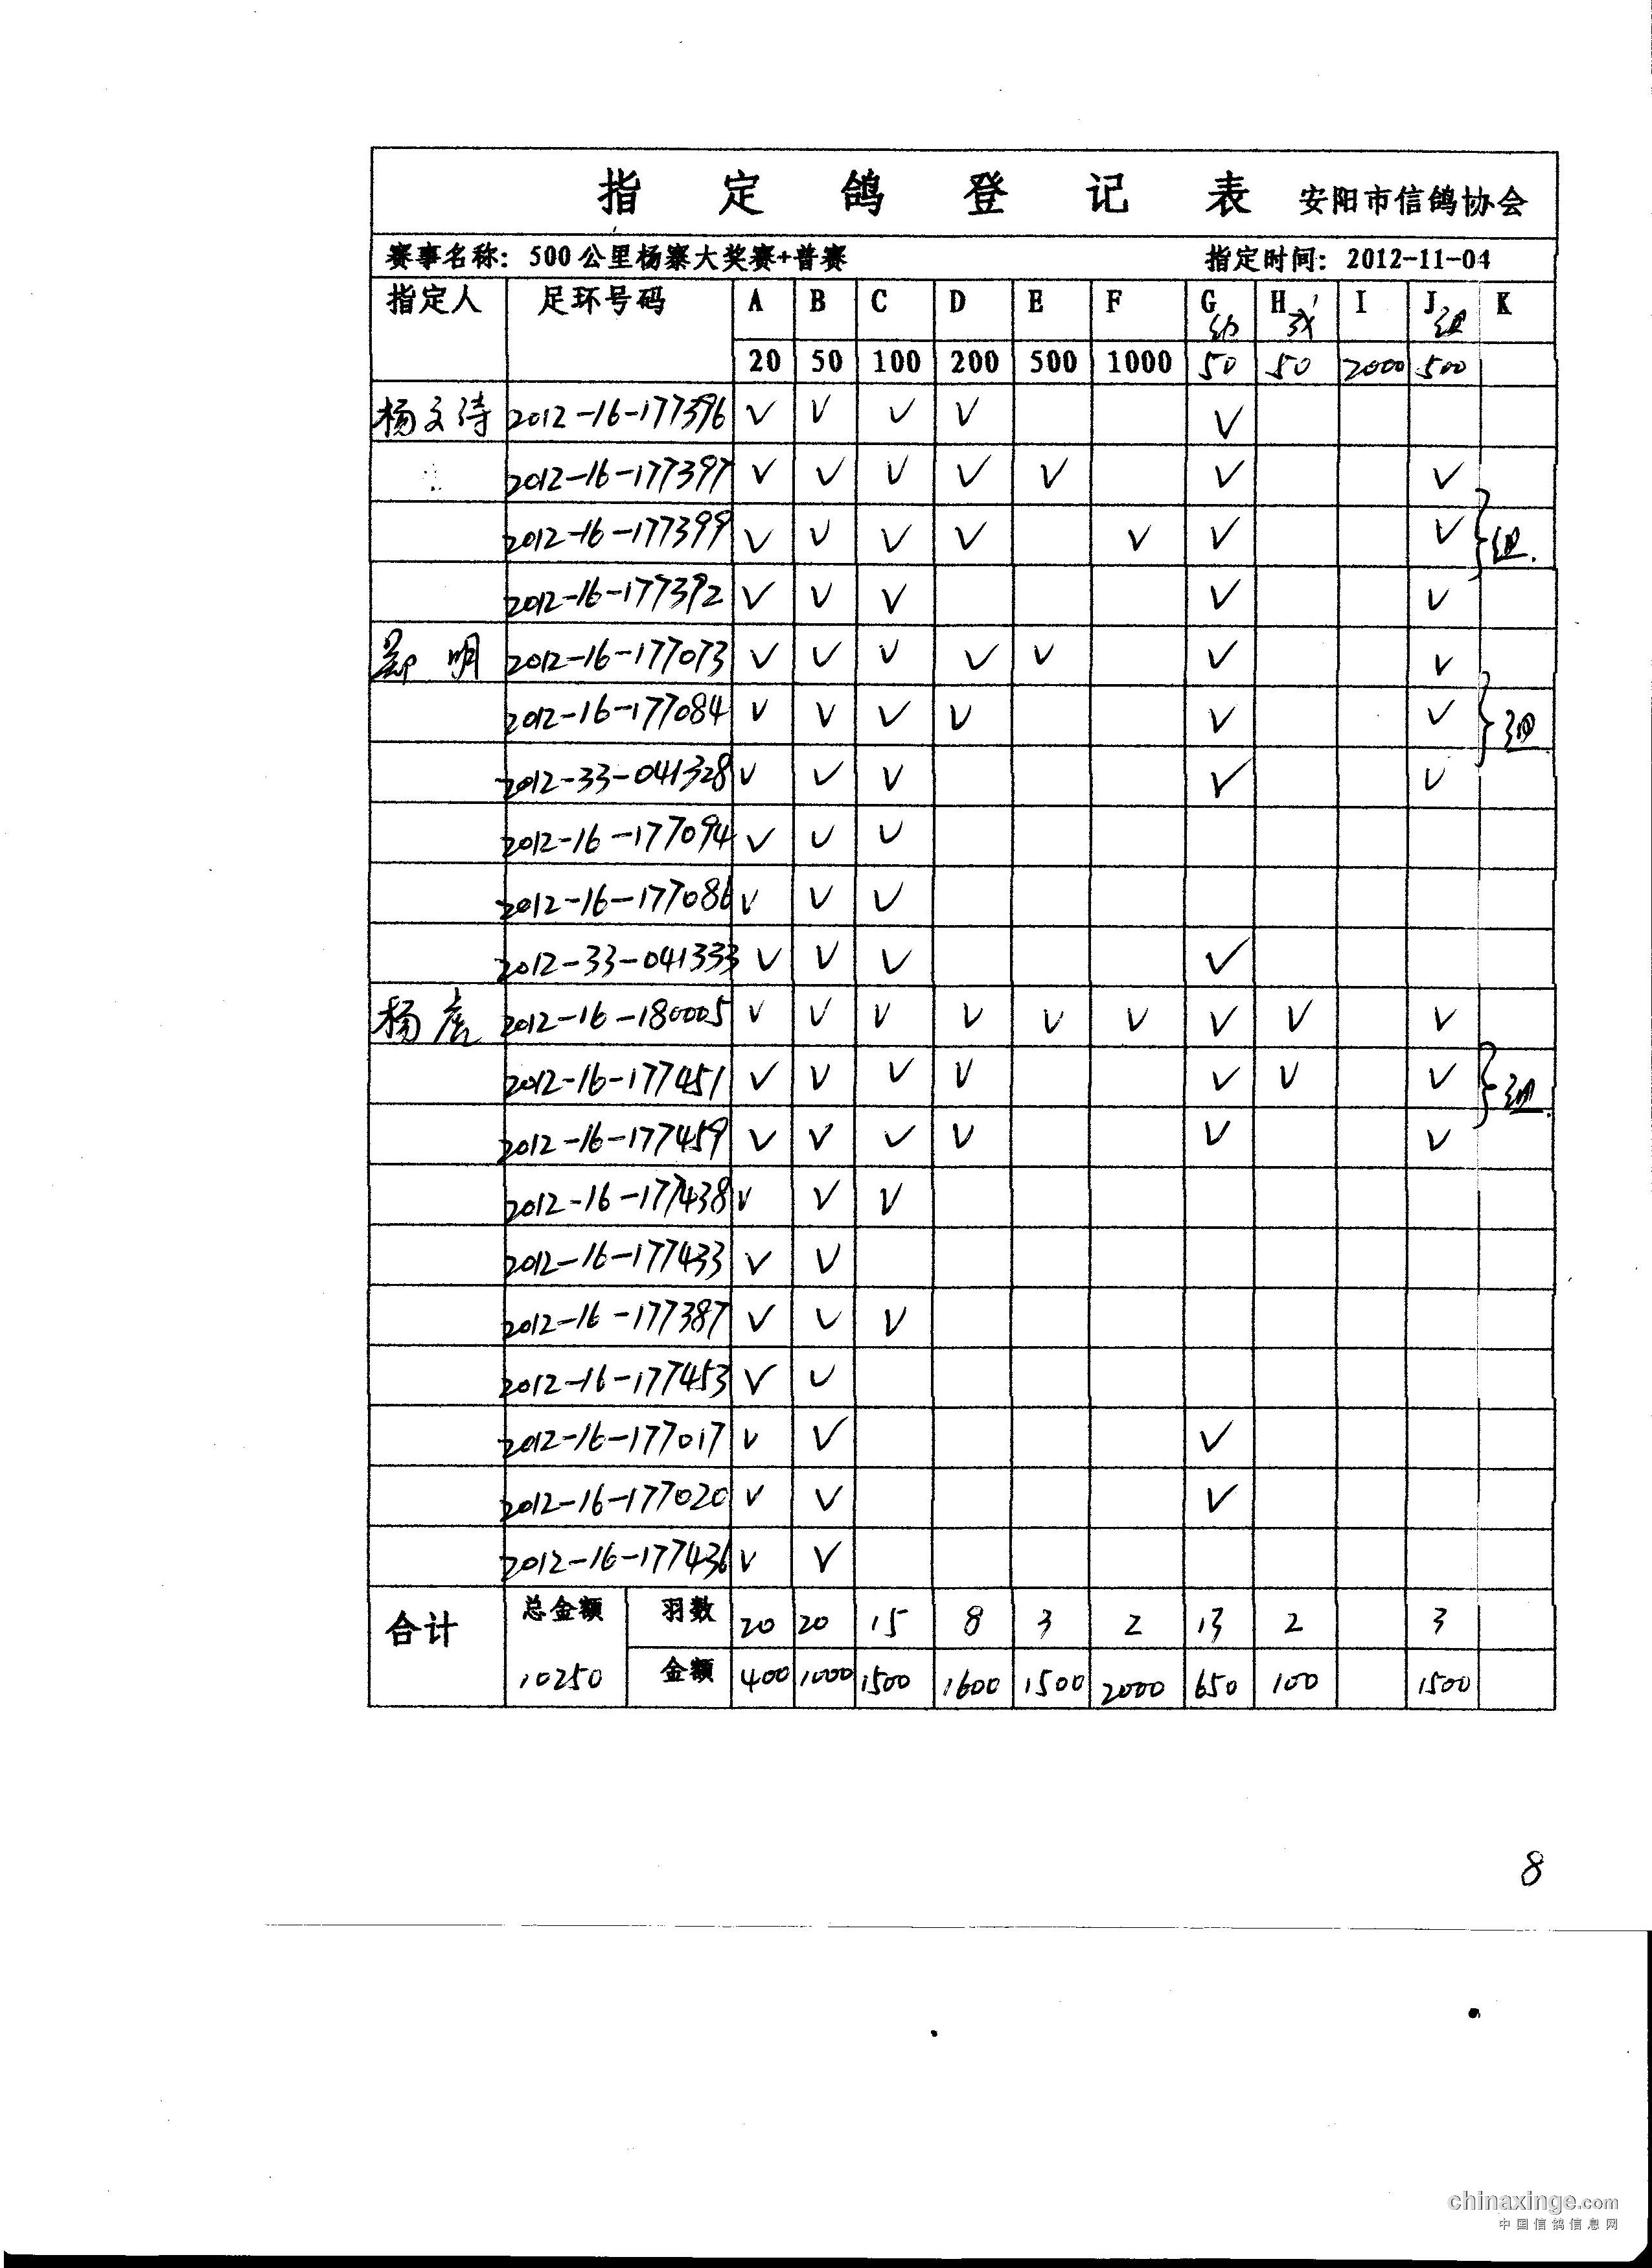 指定鸽登记表 安阳市信鸽协会
赛事名称：500公里杨寨大奖赛+普赛 指定时间：2012-11-04
指定人 足环号码 A B C D E F G幼 H成 I J组 K
20 50 100 200 500 1000 50 50 2000 500
杨文涛 2012-16-177396 V V V V V
2012-16-177397 V V V V V V V
2012-16-177399 V V V V V V V 组.
2012-16-177392 V V V V V
郭明 2012-16-177073 V V V V V V V
2012-16-177084 V V V V V V 组
2012-33-041328 V V V V V
2012-16-177094 V V V
2012-16-177086 V V V
2012-33-041333 V V V V
杨 2012-16-180005 V V V V V V V V V
2012-16-177451 V V V V V V V 组.
2012-16-177459 V V V V V V
2012-16-177438 V V V
2012-16-177433 V V
2012-16-177387 V V V
2012-16-177453 V V
2012-16-177017 V V V
2012-16-177020 V V V
2012-16-177436 V V
合计 总金额 羽数 20 20 15 8 3 2 13 2 3
10250 金额 400 1000 1500 1600 1500 2000 650 100 1500
8
chinaxinge.com
中国信鸽信息网